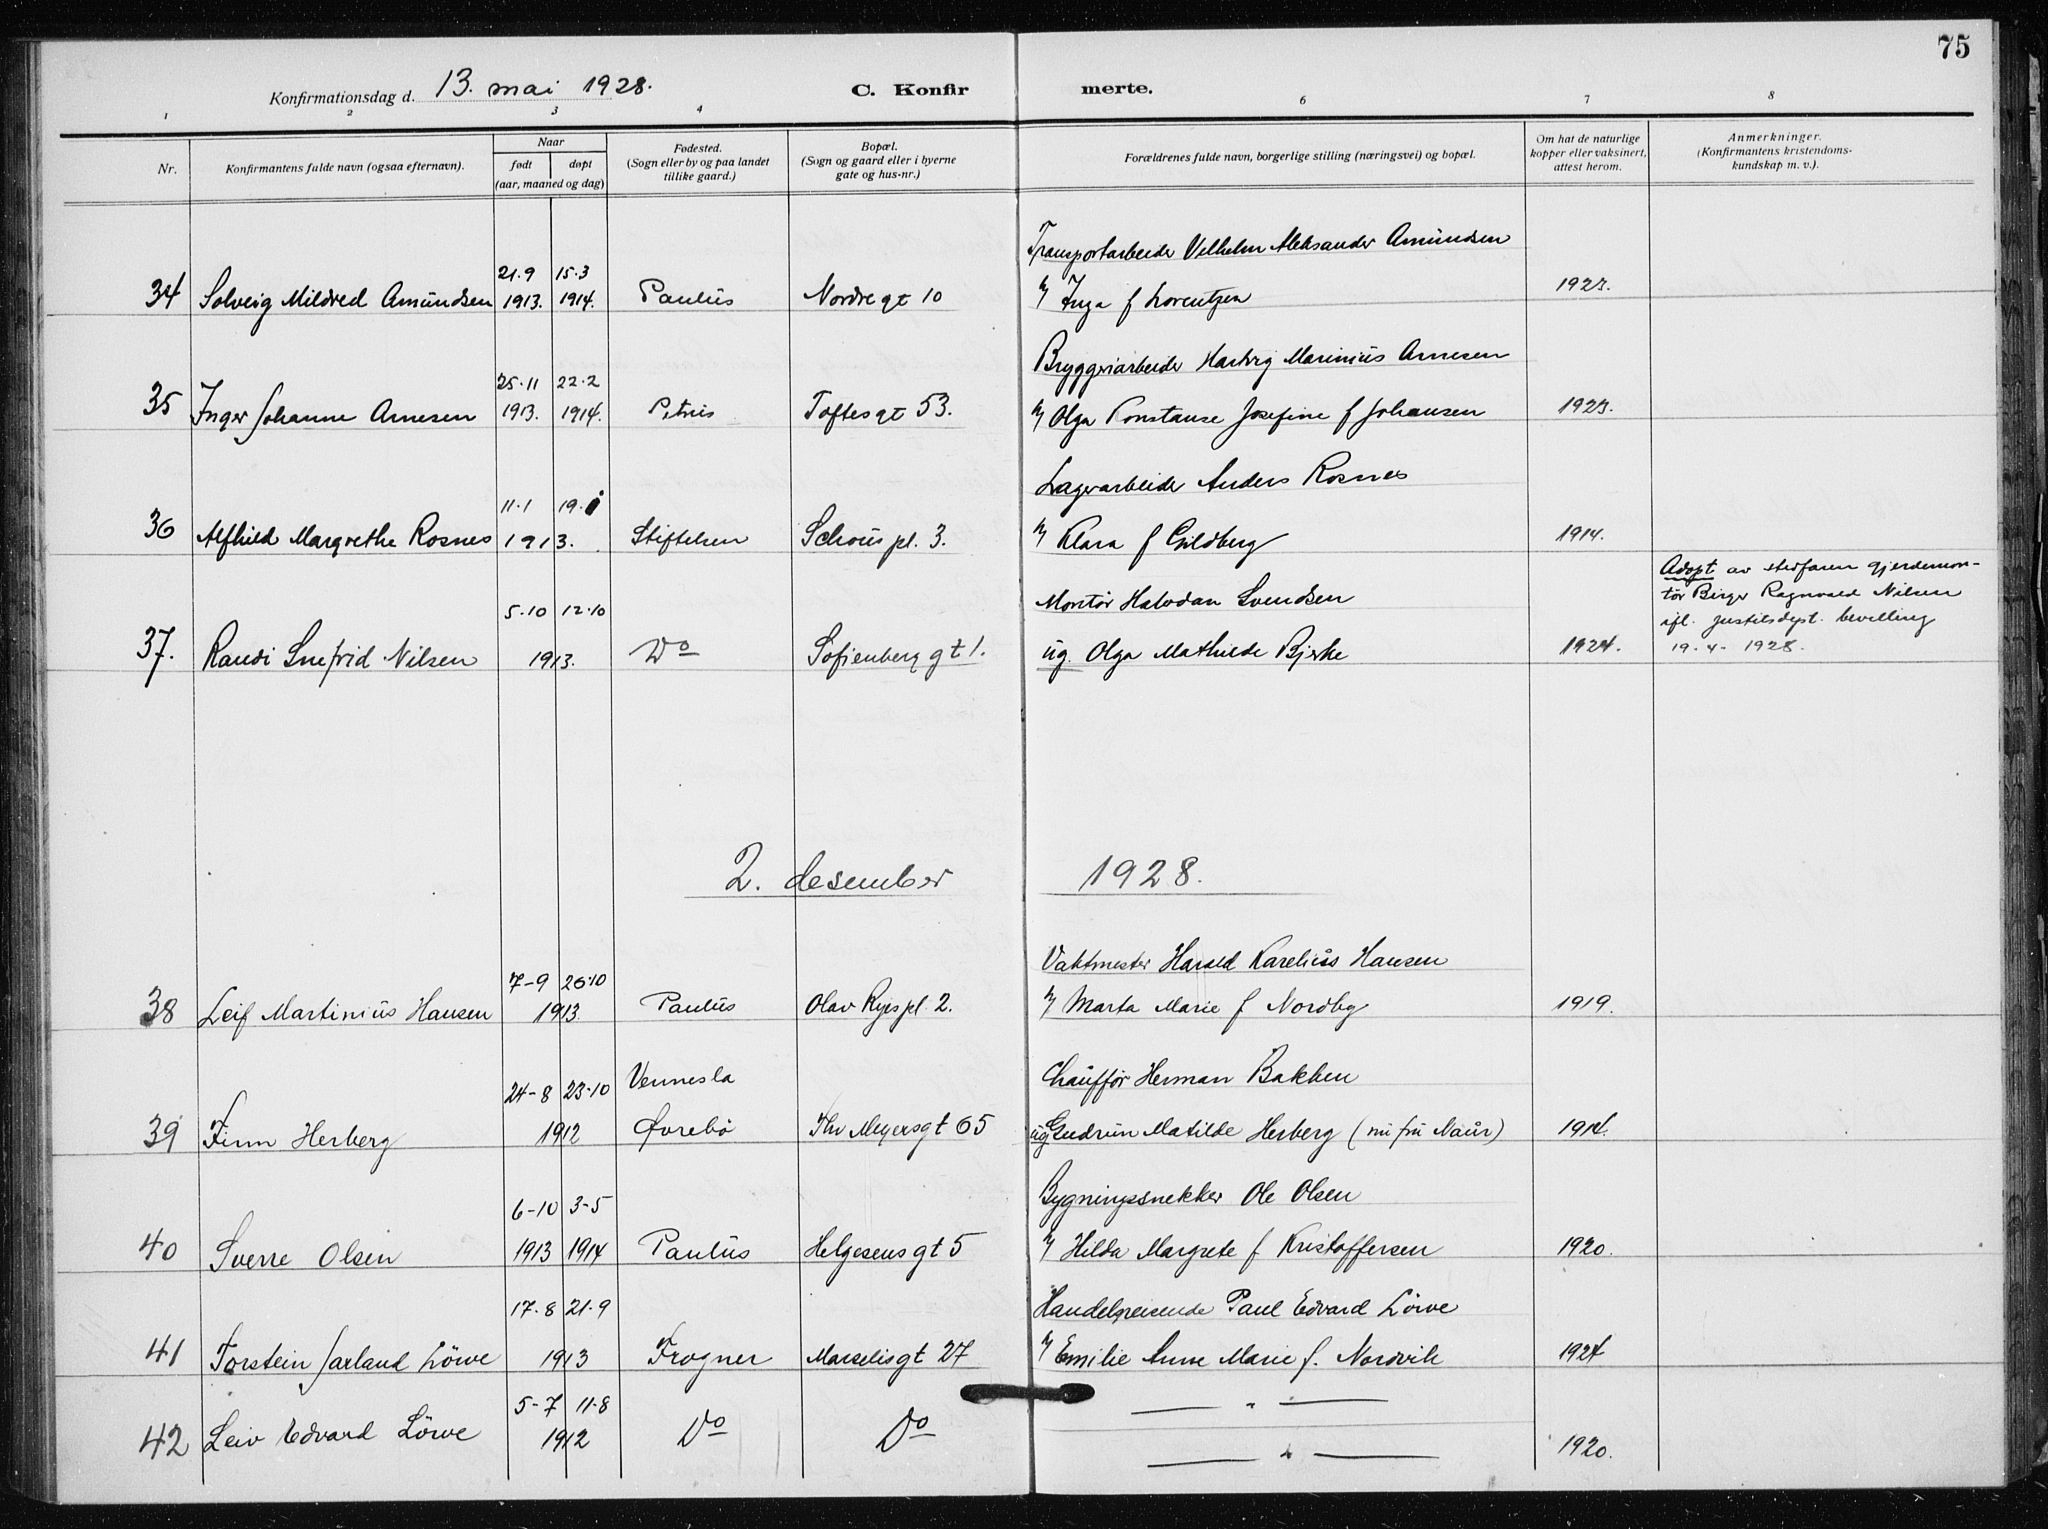 75
Konfirmationsdag d. 13. mai 1928. C. Konfirmerte.
1 2 3 4 6 7 8
Nr. Konfirmantens fulde navn (ogsaa efternavn). Naar født døpt (aar, maaned og dag) Fødested. (Sogn eller by og paa landet tillike gaard.) Bopæl. (Sogn og gaard eller i byerne gate og hus-nr.) Forældrenes fulde navn, borgerlige stilling (næringsvei) og bopæl. Om hat de naturlige kopper eller vaksinert, attest herom. Anmerkninger. (Konfirmantens kristendoms-kundskap m. v.).
Transportarbeider Vilhelm Aleksander Amundsen
21.9 15.3
34 Solveig Mildred Amundsen 1913. 1914. Paulus Nordregt 10 Inga f Lorentzen 1923.
Bryggeriarbeider Hartvig Marinius Arnesen
25.11 22.2
35 Inger Johanne Arnesen 1913. 1914. Petrus Toftesgt 53. Olga Konstanse Josefine f Johansen 1923.
Lagerarbeider Anders Rosnes
11.1 19.
36 Alfhild Margrethe Rosnes 1913. Stiftelsen Schous pl. 3. Klara f Gildberg 1914.
Adopt av stedfaren gjerdemon-
5.10 12.10 Montør Halvdan Svendsen tør Birger Ragnvald Nilsen
ifl. justitsdept. bevilling
37. Randi Snefrid Nilsen 1913. Do Sofienberg gt 1. ug. Olga Mathilde Bjerke 1924. 19.4.1928.
2. desember 1928.
Vaktmester Harald Karelius Hansen
7-9 26.10
38 Leif Martinius Hansen 1913 Paulus Olav Ryes pl. 2. Marta Marie f Nordby 1919.
24-8 23-10 Vennesla Chauffør Herman Bakken
39 Finn Herberg 1912 Øvrebø Thv Meyersgt 65 ug Gudrun Matilde Herberg (nu fru Naur) 1914.
6-10 3-5 Bygningssnekker Ole Olsen
40 Sverre Olsen 1913 1914 Paulus Helgesensgt 5 Hilda Margrete f Kristoffersen 1920.
17.8 21.9 Handelsreisende Paul Edvard Löwe
41 Torstein Jarland Löwe 1913 Frogner Marselisgt 27 Emilie Anne Marie f. Nordvik 1924
5-7 11-8 — " —
42 Leiv Edvard Löwe 1912 Do Do — " — 1920.